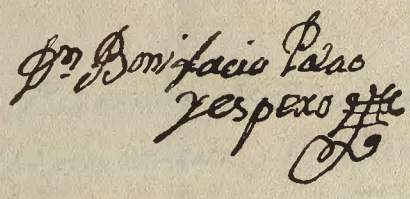 Dn Bonifacio Pdao
y espero